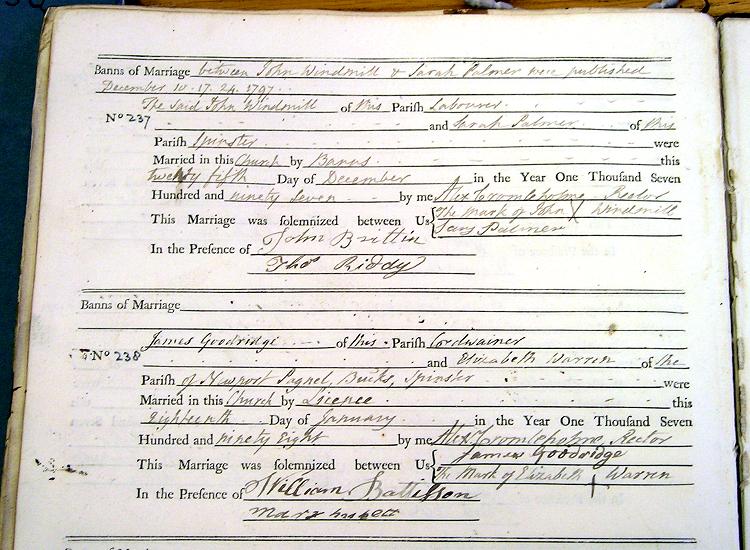 Banns of Marriage between John Windmill & Sarah Palmer were published
December 10. 17. 24. 1797.
The Said John Windmill of this Parish Labourer
No 237 and Sarah Palmer of this
Parish Spinster were
Married in this Church by Banns this
twenty fifth Day of December in the Year One Thousand Seven
Hundred and ninety Seven by me Alex Crombleholme Rector
This Marriage was solemnized between Us The Mark of John X Windmill
Sary Palmer
In the Presence of John Brittin
Thos Riddy
Banns of Marriage
James Goodridge of this Parish Cordwainer
No 238 and Elizabeth Warren of the
Parish of Newport Pagnel, Bucks, Spinster were
Married in this Church by Licence this
Eighteenth Day of January in the Year One Thousand Seven
Hundred and ninety Eight by me Alex Crombleholme, Rector
This Marriage was solemnized between Us James Goodridge
The Mark of Elizabeth X Warren
In the Presence of William Battisson
Mary